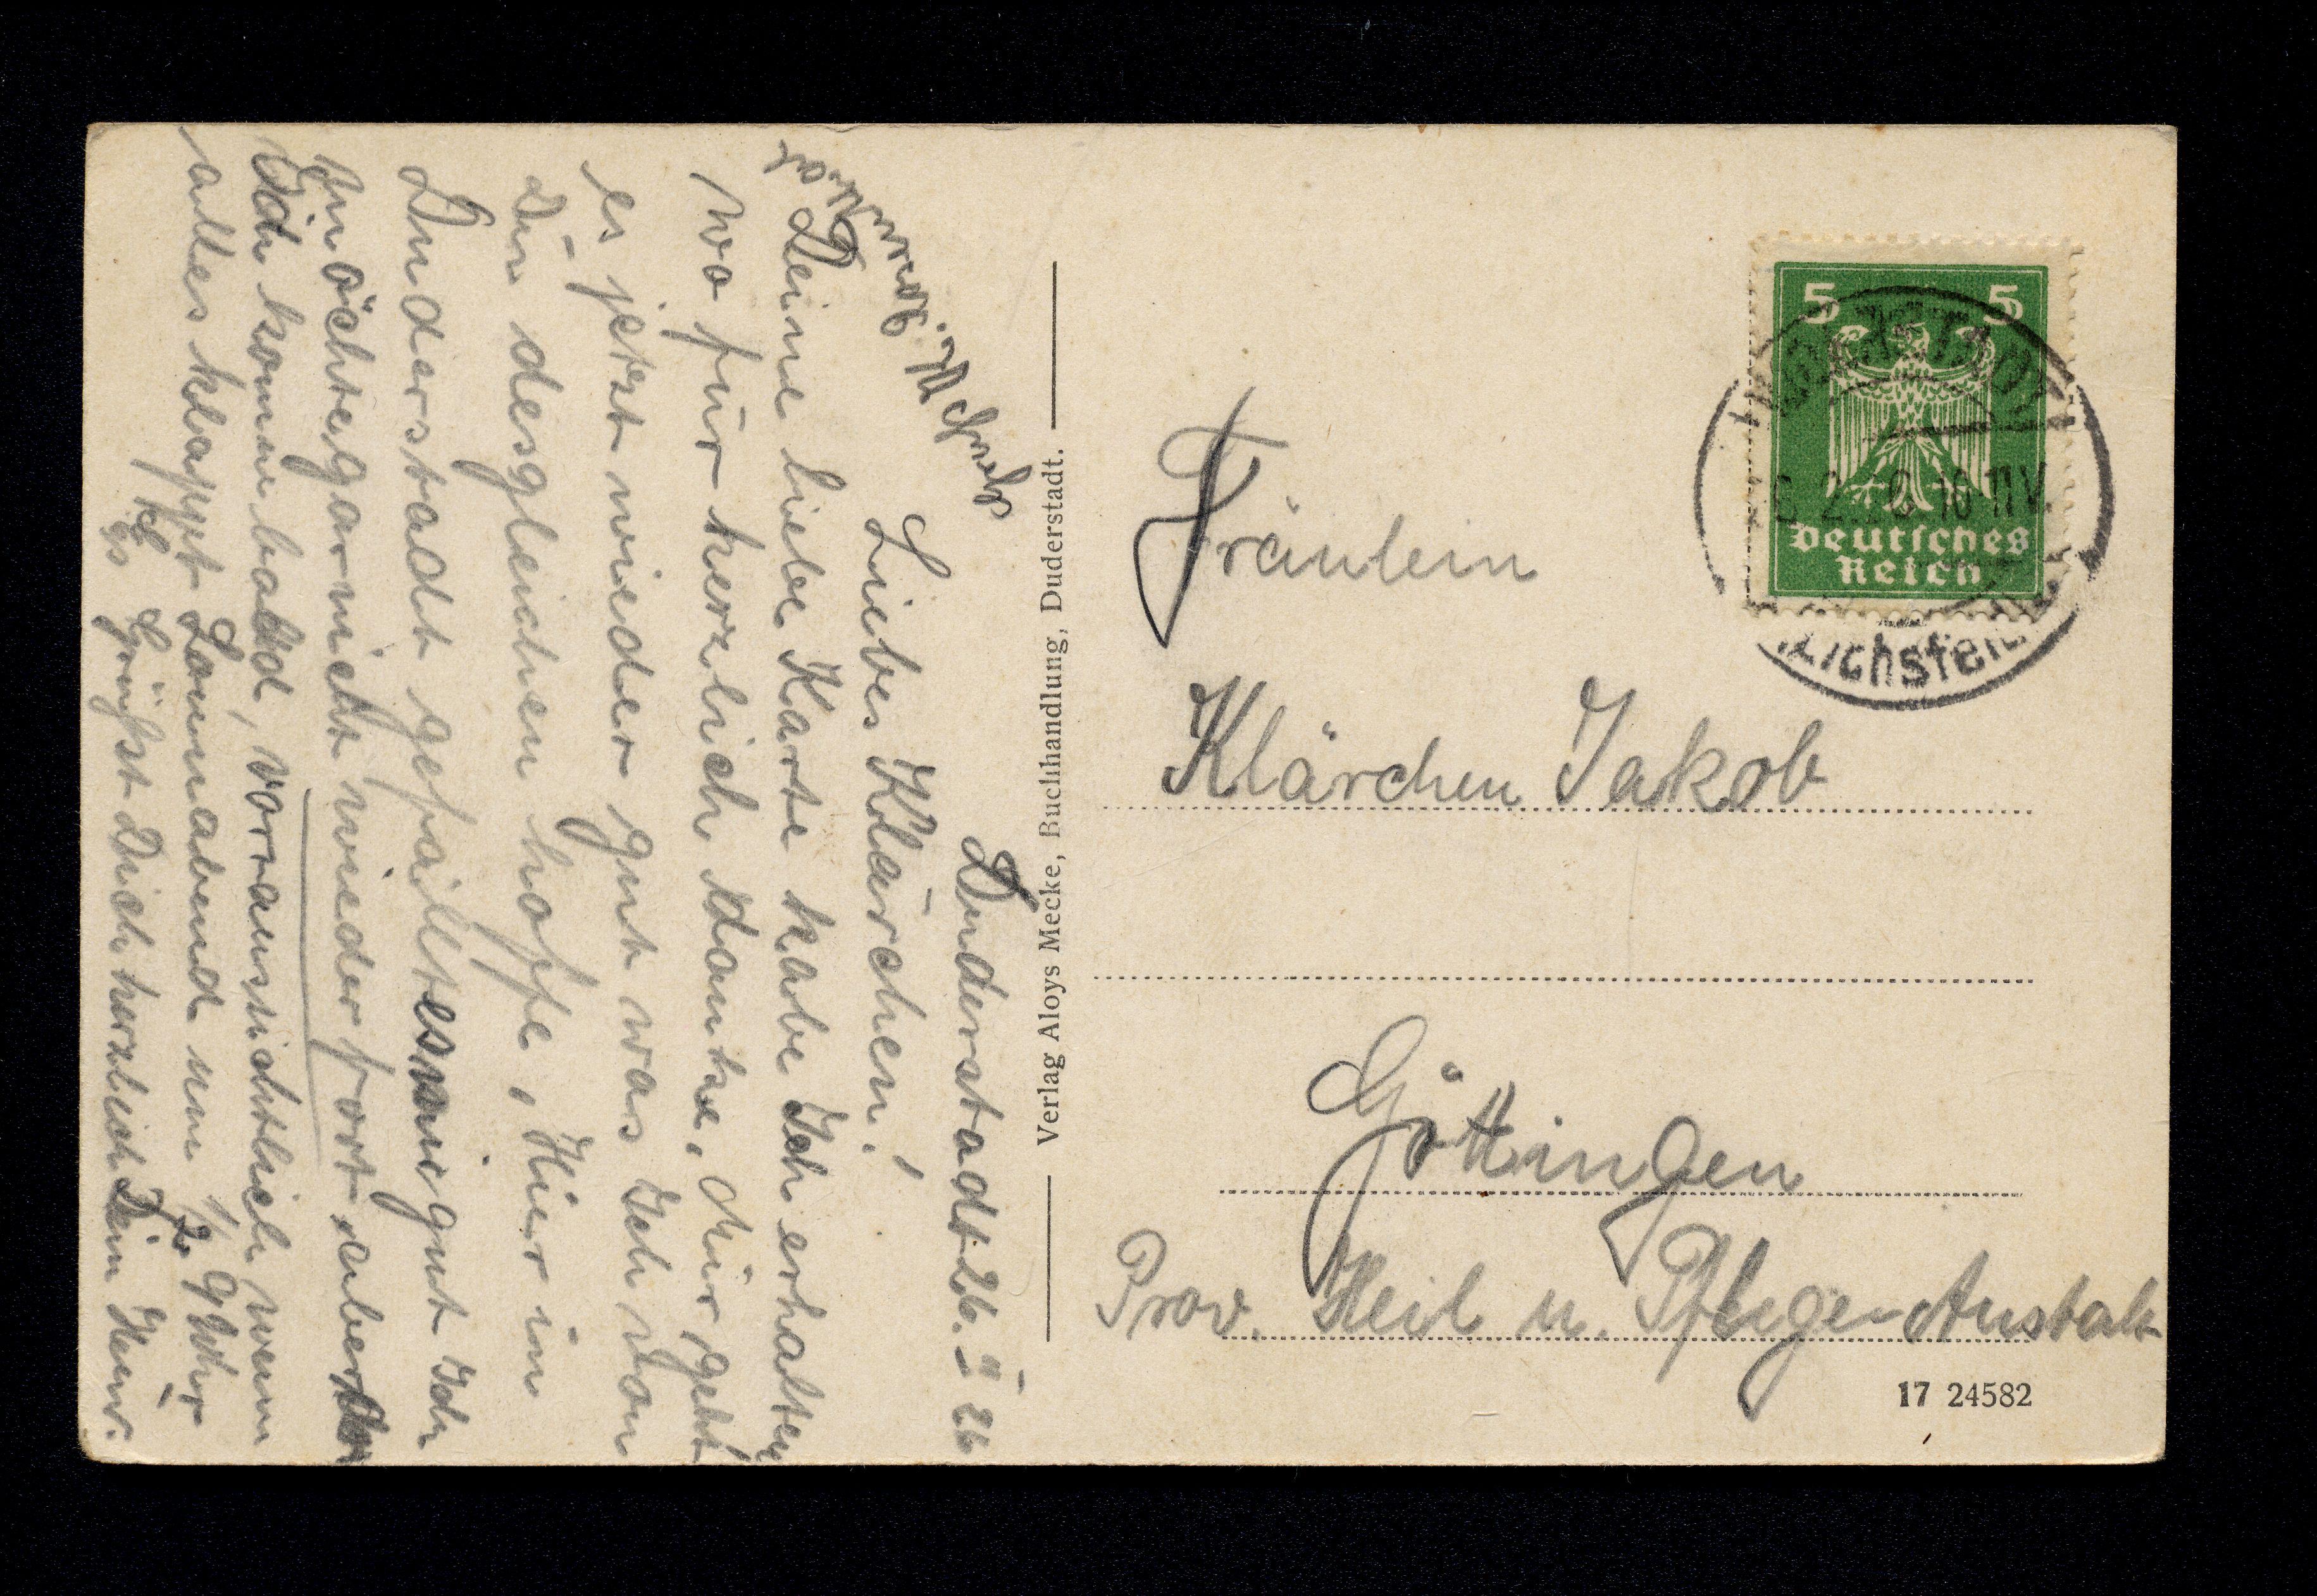 Duderstadt 26. II 26
Liebes Klärchen!
Deine liebe Karte habe Ich erhalten
wo für herzlich danke, Mir geht
es jetzt wieder gut was Ich von
Dir desgleichen hoffe, Hier in
Duderstadt gefällt es mir gut Ich
möchte garnicht wieder fort aber
Ich komme bald, voraussichtlich wenn
alles klappt Sonnabend um 1/2 9 Uhr
Es Grüßt Dich herzlich Dein Heinr.
Verlag Aloys Mecke, Buchhandlung, Duderstadt.
5 5
Deutsches
Reich
Eichsfeld
Fräulein
Klärchen Jakob
Göttingen
Prov. Heil u. Pflege-Anstalt
17 24582